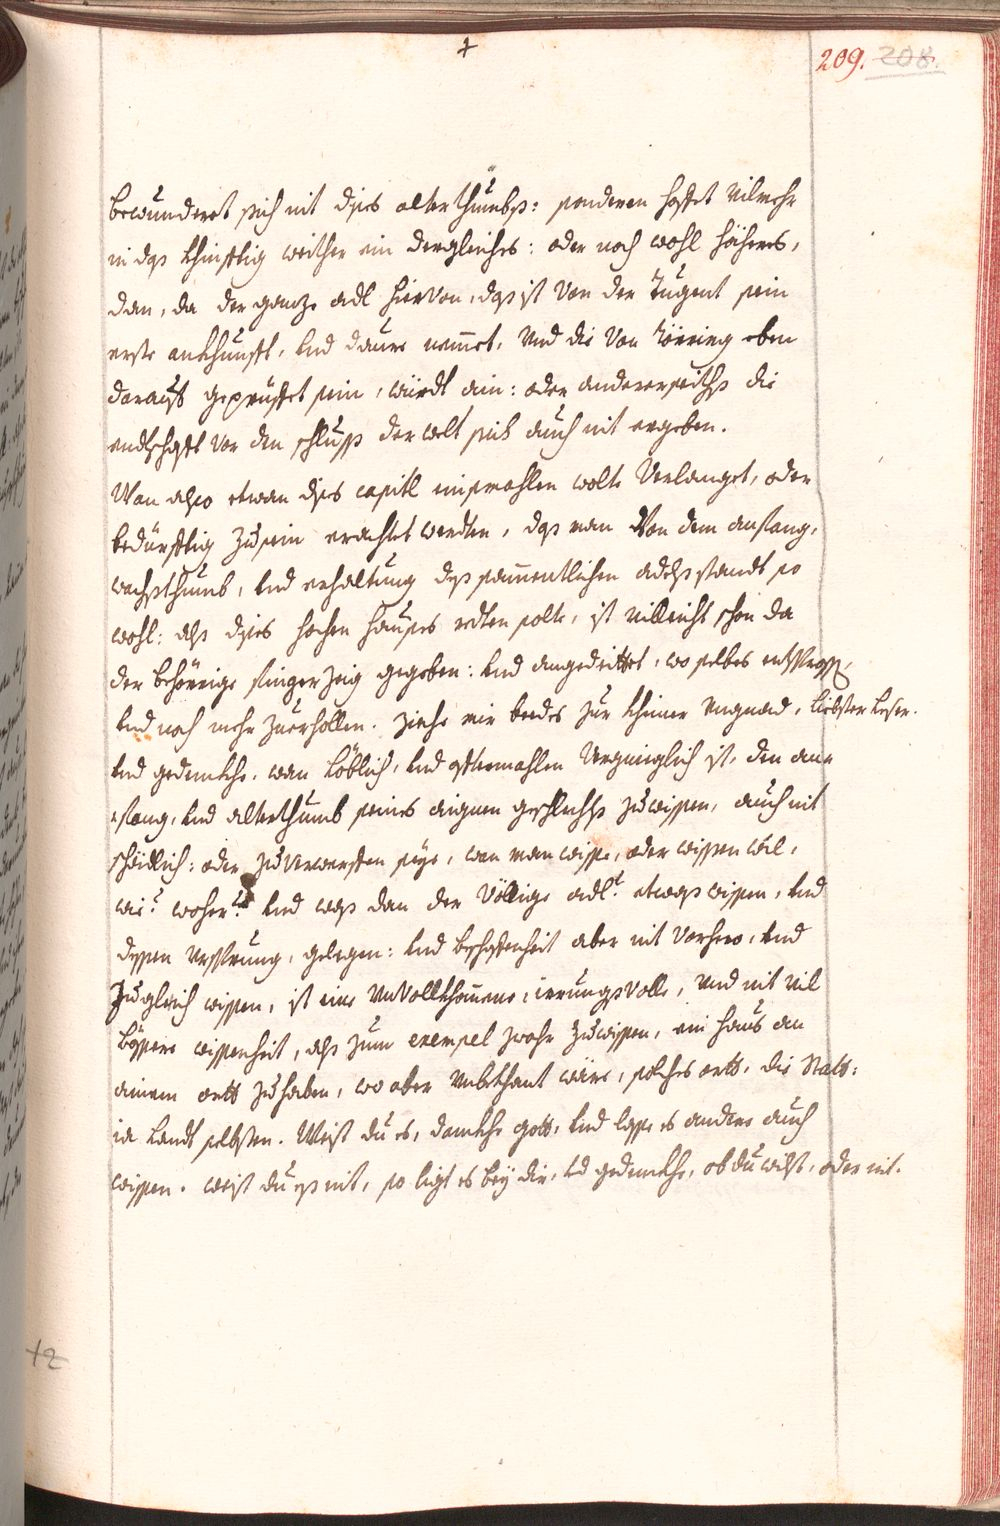 +
209. 208.
bewunderet sich nit dises alterthumbs: sonderen hoffet vilmehr
in das khinfftig weither ein dergleiches: oder noch wohl höheres,
dan, da der ganze adl hiervon, das ist von der Tugent sein
erste ankhunfft, und daure nemet, und die von Törring eben
darauff gegründet sein, würdt ain: oder andererseiths die
endtschafft vor den schluss der welt sich auch nit ergeben.
Wan also etwan dises capitl einsmahlen wolte verlanget, oder
bedürfftig zu sein erachtet werden, das man von dem anfang,
wachsthumb, und erhaltung des sammentlichen adelsstandt so
wohl: als dises hochen hauses reden solte, ist villeicht schon da
der behörige fingerzeig gegeben: und angedeittet, wo selbes entsprossen,
und noch mehr zuerhollen. ziehe mir beedes zur kheiner ungnad, liebster leser.
und gedenckhe. wan löblich, und offtermahlen vergnieglich ist, den an-
fang, und alterthumb seines aignen geschlechts zu wissen, auch nit
schädlich: oder zu verwerffen seye, wan man wisse, oder wissen wil,
wie? woher? und was dan der völlige adl? etwas wissen, und
dessen ursprung, gelegen: und beschaffenheit aber nit vorhero, und
zugleich wissen, ist eine unvollkhomene: irrungsvolle, und nit vil
bessere wissenheit, als zum exempel zwahr zu wissen, ein haus an
ainem orth zu haben, wo aber unbekhant wäre, solches orth, die Statt:
ia landt selbsten. Weist du es, danckhe gott, und lasse es andere auch
wissen. weist du es nit, so ligt es bey dir, und gedenckhe, ob du wilst, oder nit.
+2